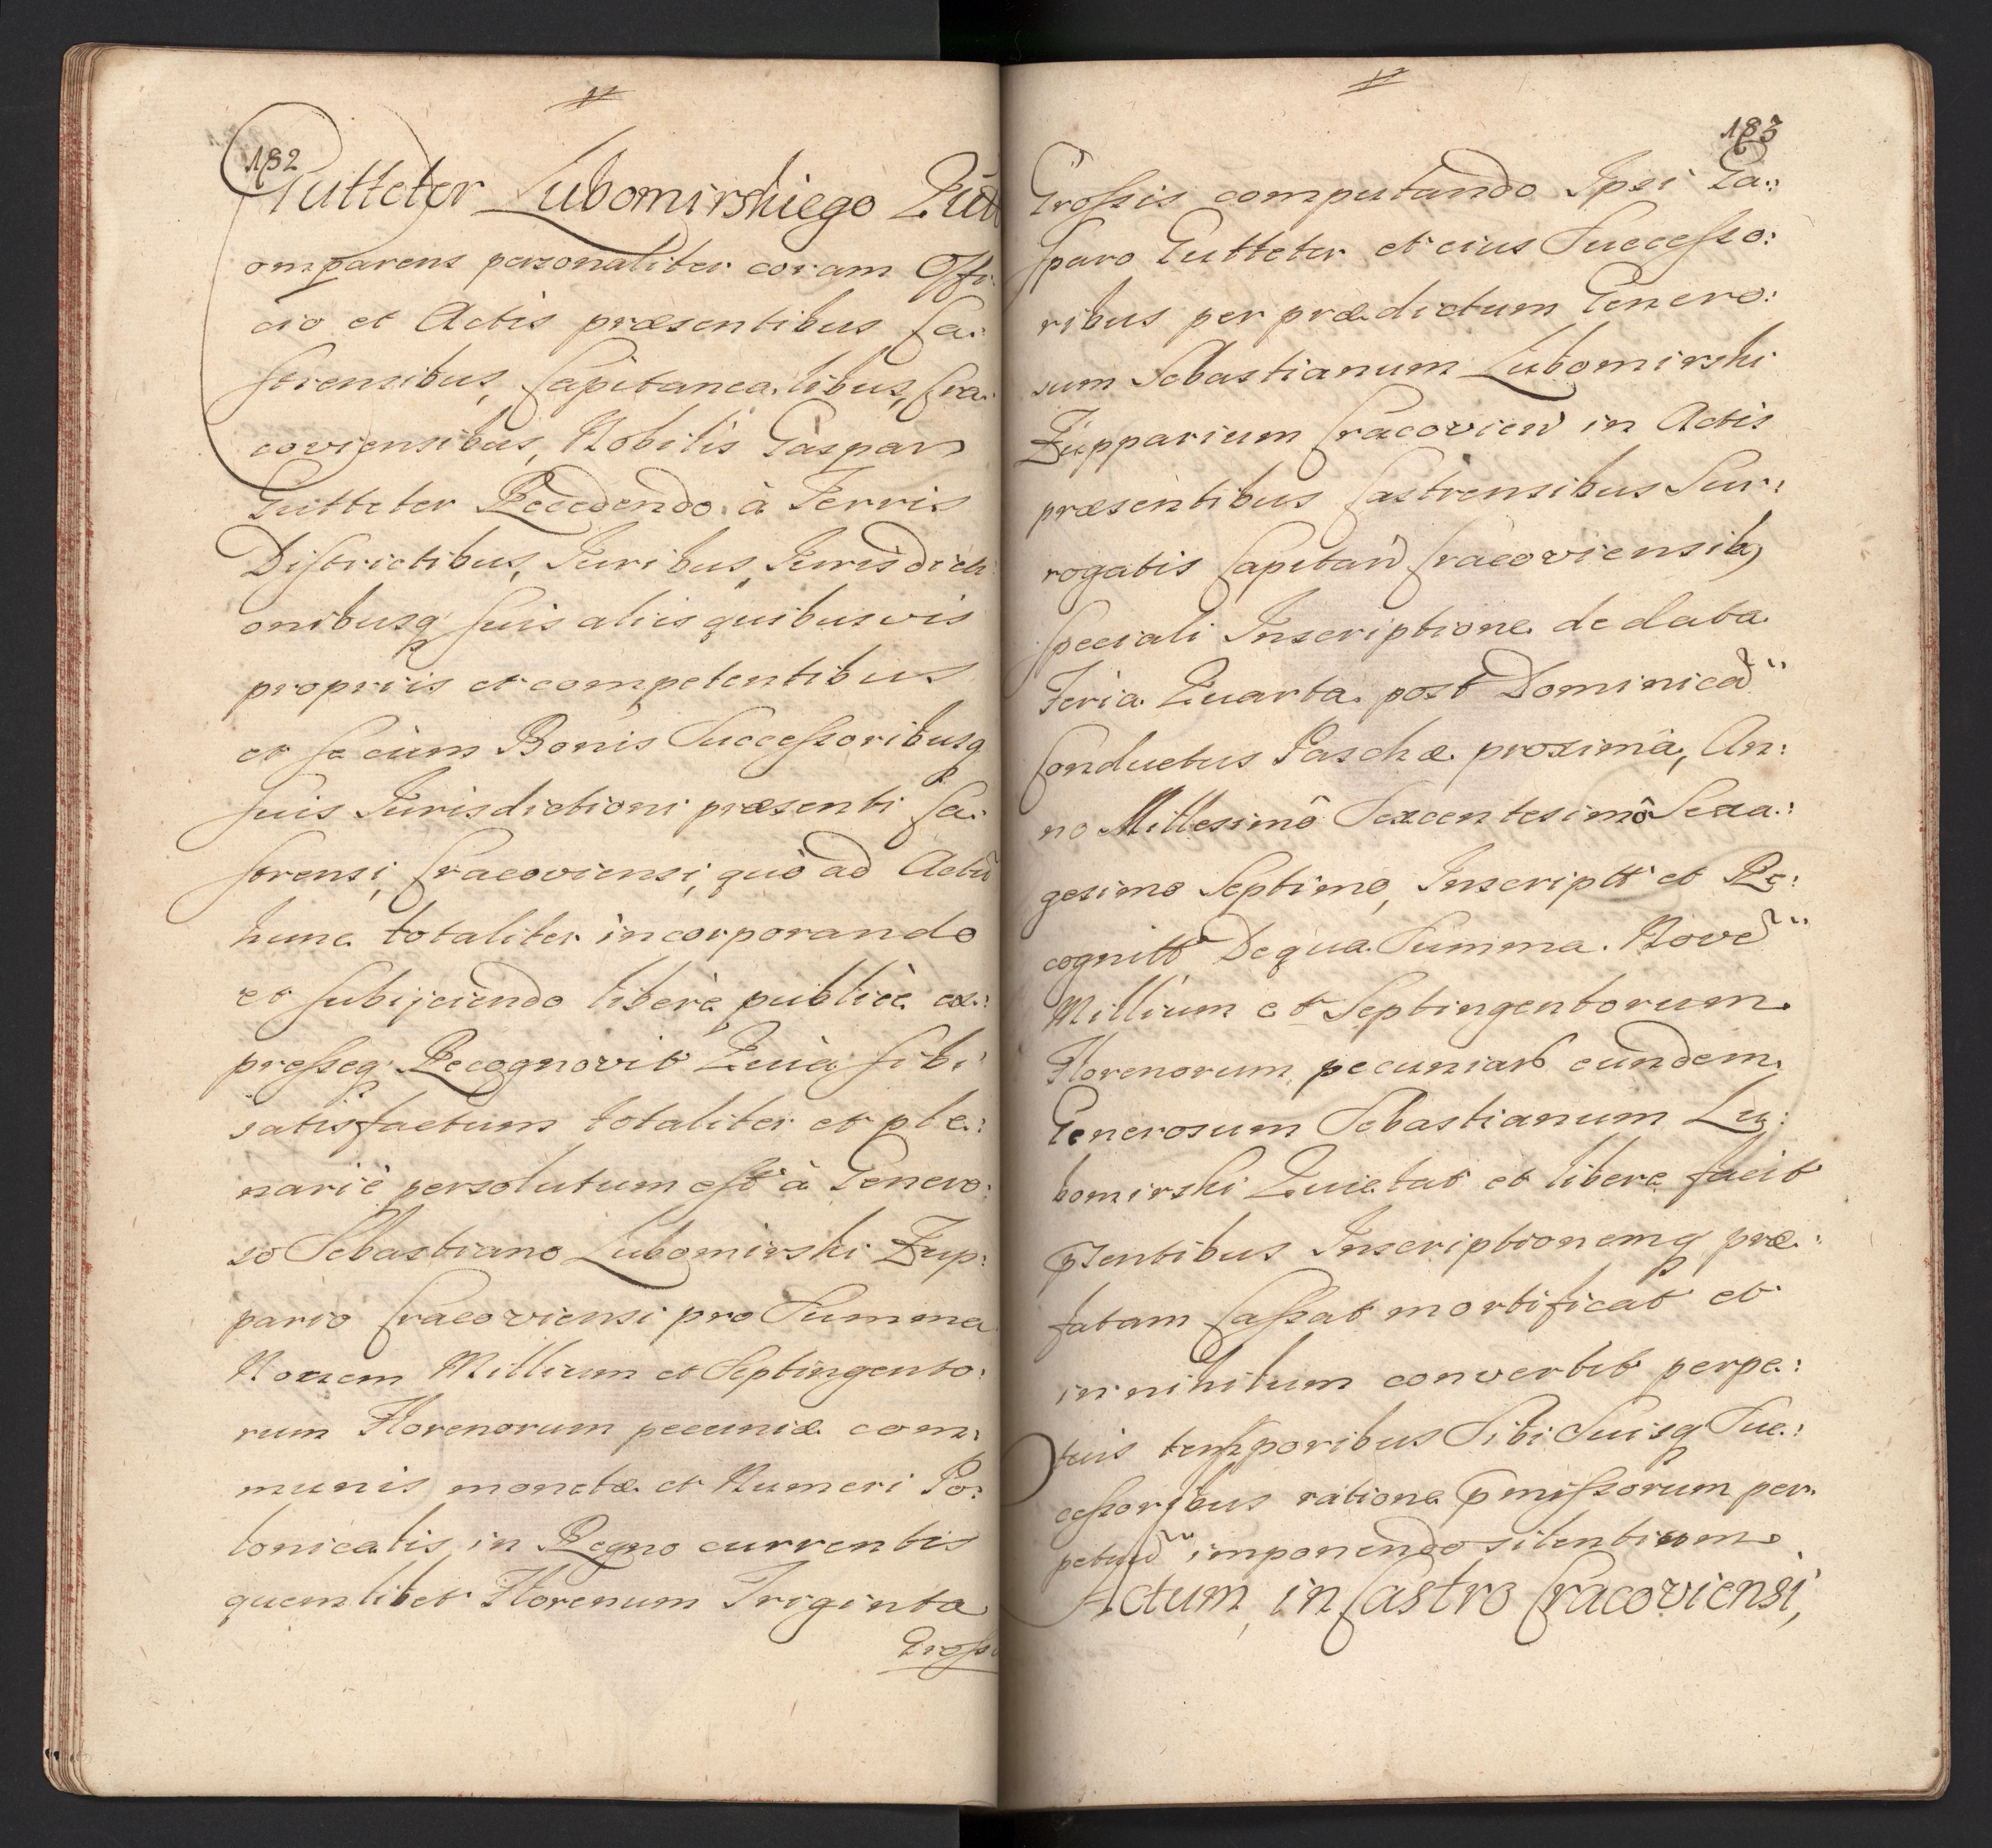 182
Gutteter Lubomirskiego Quit
omparens personaliter coram Offi:
cio et Actis præsentibus Ca:
strensibus, Capitanealibus, Cra:
coviensibus, Nobilis Gaspar
Gutteter Recedendo à Terris
Districtibus, Juribus, Jurisdicti
onibusq suis aliis quibusvis
propriis et competentibus
et se cum Bonis Successoribusq
suis Jurisdictioni præsenti Ca:
strensi, Cracoviensi, quò ad Actũ
hunc totaliter incorporando
et subijciendo liberè publicè ex:
presseq Recognovit Quia sibi
satisfactum totaliter et ple:
nariè persolutum est à Genero:
so Sebastiano Lubomirski Zup:
pario Cracoviensi pro Summa
Novem Millium et Septingento:
rum Florenorum pecuniæ com:
munis monetæ et Numeri Po:
lonicalis in Regno currentis
quemlibet Florenum Triginta
Grossis
183
Grossis computando Ipsi Ga:
sparo Gutteter et eius Successo:
ribus per prædictum Genero:
sum Sebastianum Lubomirski
Zupparium Cracovień in Actis
præsentibus Castrensibus Sur:
rogatis Capitań Cracoviensib9
speciali Inscriptione de data
Feria Quarta post Dominicã
Conductus Paschæ proxima, An:
no Millesimô Sexcentesimô Sexa:
gesimo Septimo, Inscriptt et Re:
cognitt De qua Summa Novẽ
Millium et Septingentorum
Florenorum pecuniarỹ eundem
Generosum Sebastianum Lu:
bomirski Quietat et libere facit
p̃sentibus Inscriptionemq præ:
fatam Cassat mortificat et
in nihilum convertit perpe:
tuis temporibus Sibi Suisq Suc:
cessoribus ratione p̃missorum per
petuũ imponendo silentium
Actum, in Castro Cracoviensi,